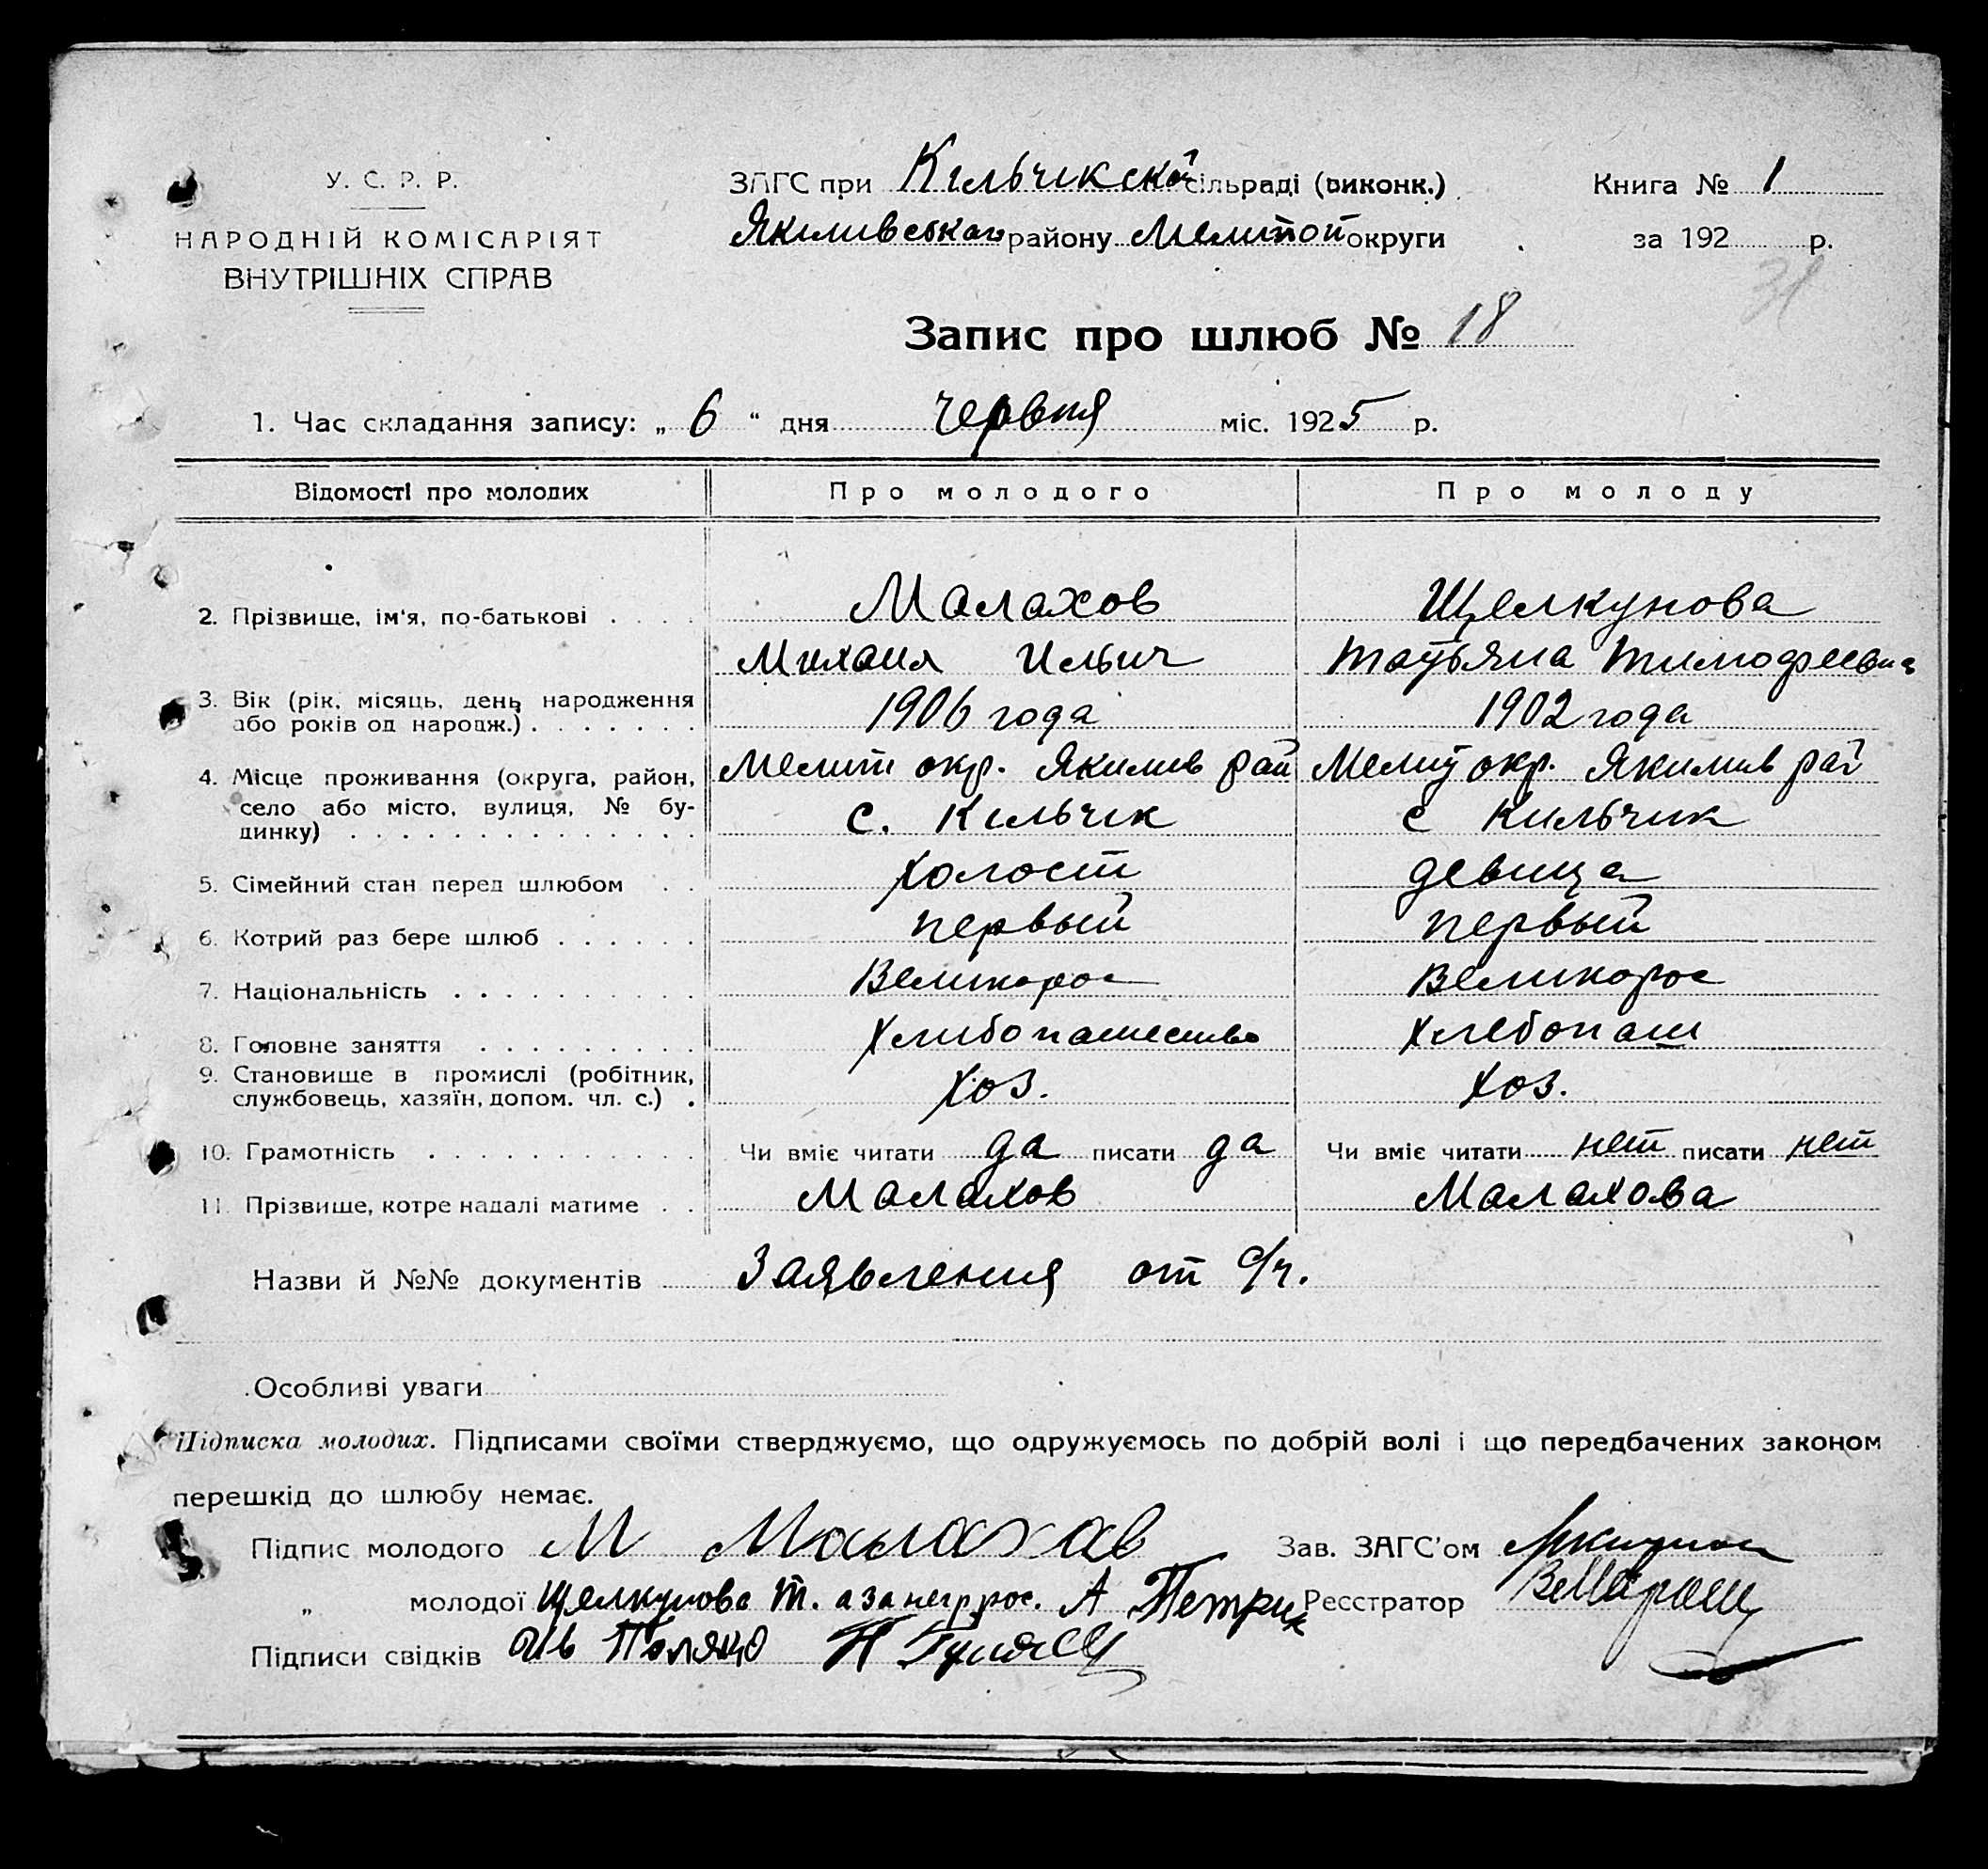 У. С. Р. Р.
НАРОДНІЙ КОМІСАРІЯТ
ВНУТРІШНІХ СПРАВ
ЗАГС при Кильчикской сільраді (виконк.)
Якимивського району Мелитоп округи
Книга № 1
за 192 р.
31
Запис про шлюб № 18
1. Час складання запису: „ 6 “ дня червня міс. 1925 р.
Відомості про молодих Про молодого Про молоду
2. Прізвище, ім'я, по-батькові . . . . Малахов Щелкунова
Михаил Ильич Татьяна Тимофеевна
3. Вік (рік, місяць, день народження
або років од народж.) . . . . . . . 1906 года 1902 года
4. Місце проживання (округа, район, Мелит окр. Якимив рай Мелит окр. Якимив рай
село або місто, вулиця, № бу-
динку) . . . . . . . . . . . . . . с. Кильчик с Кильчик
5. Сімейний стан перед шлюбом . . холост девица
6. Котрий раз бере шлюб . . . . . . первый первый
7. Національність . . . . . . . . . . Великорос Великорос
8. Головне заняття . . . . . . . . . Хлибопашество Хлебопаш
9. Становище в промислі (робітник,
службовець, хазяїн, допом. чл. с.) . Хоз. Хоз.
10. Грамотність . . . . . . . . . . . Чи вміє читати да писати да Чи вміє читати нет писати нет
11. Прізвище, котре надалі матиме . . Малахов Малахова
Назви й №№ документів Заявления от с/ч.
Особливі уваги
Підписка молодих. Підписами своїми стверджуємо, що одружуємось по добрій волі і що передбачених законом
перешкід до шлюбу немає.
Підпис молодого М Малахав Зав. ЗАГС'ом
„ молодої Щелкунова Т. а за негр рос. А Петрик Реєстратор
Підписи свідків Ив